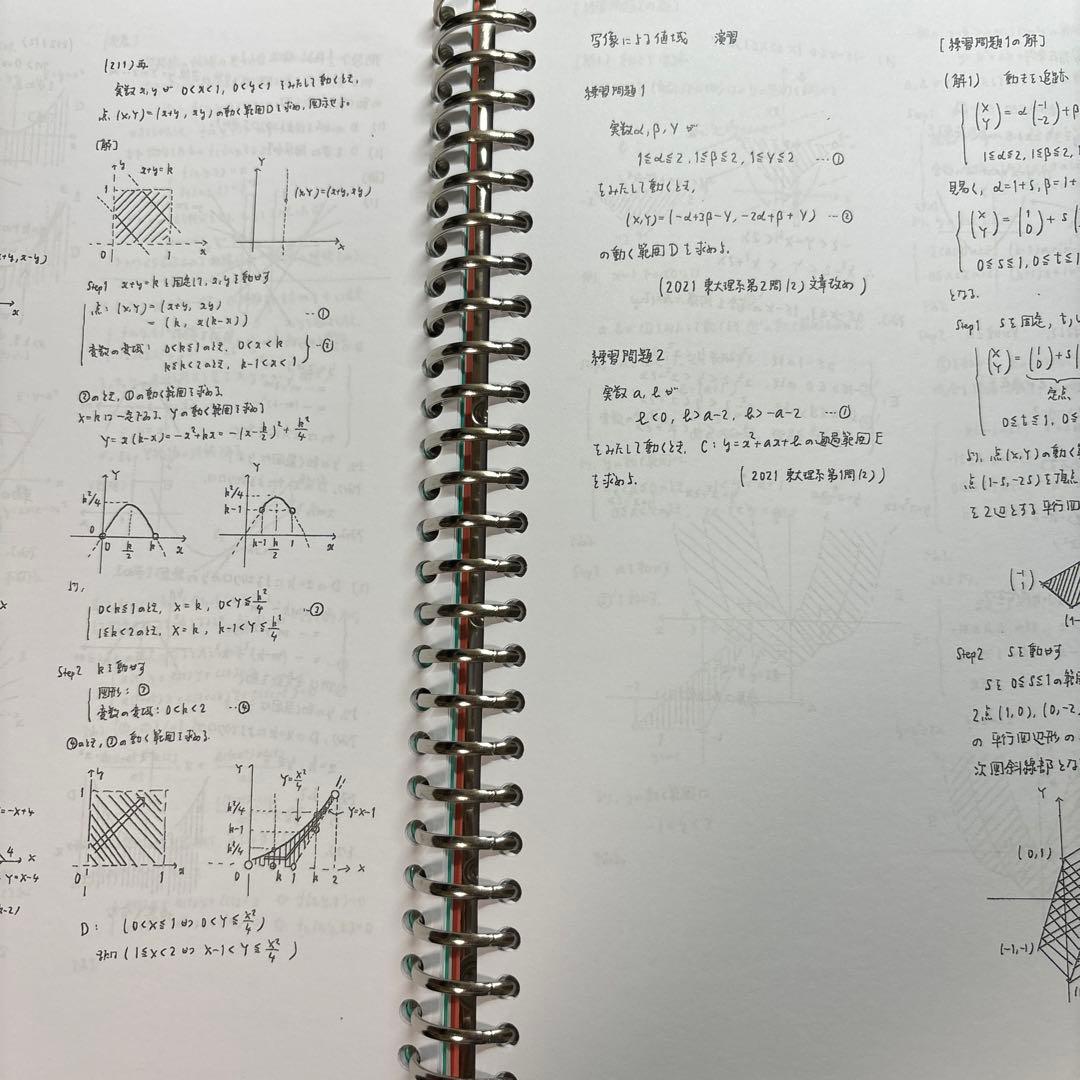 (211)再
実数x, yが 0<x<1, 0<y<1 をみたして動くとき,
点(X, Y)=(x+y, xy)の動く範囲Dを求め, 図示せよ.
[解]
y
x+y=k
1
0
1
x
Y
(X,Y)=(x+y, xy)
X
Step1 x+y=k を固定して, x, yを動かす
点: (X, Y)=(x+y, xy)
=(k, x(k-x)) …①
変数の変域: 0<k≦1のとき, 0<x<k
k≦k<2のとき, k-1<x<1 …②
②のとき, ①の動く範囲を求める.
X=kは一定である. Yの動く範囲を求める
Y=x(k-x)=-x²+kx=-(x-k/2)²+k²/4
Y
k²/4
0
0
k/2
k
x
Y
k²/4
k-1
k-1
k/2
1
x
より,
0<k≦1のとき, X=k, 0<Y≦k²/4
1≦k<2のとき, X=k, k-1<Y≦k²/4 …③
Step2 kを動かす
図形: ③
変数の変域: 0<k<2 …④
④のとき, ③の動く範囲を求める.
y
1
0
1
x
Y
Y=X²/4
k²/4
k-1
k²/4
Y=X-1
0
k
1
k
2
X
D: (0<X≦1かつ0<Y≦X²/4)
または(1≦X<2かつX-1<Y≦X²/4)
x+y, x-y)
x
x
=-x+4
4
x
Y=X-4
-2)
写像による値域 演習
練習問題1
実数α, β, γが
1≦α≦2, 1≦β≦2, 1≦γ≦2 …①
をみたして動くとき,
(X, Y)=(-α+3β-γ, -2α+β+γ) …②
の動く範囲Dを求めよ.
(2021 東大理系第2問(2)文章改め)
練習問題2
実数a, bが
b<0, b>a-2, b>-a-2 …①
をみたして動くとき, C: y=x²+ax+bの通過範囲E
を求めよ.
(2021 東大理系第1問(2))
[練習問題1の解]
(解1) 動きを追跡
(X Y)=α(-1 -2)+β
1≦α≦2, 1≦β≦2, 1
易く, α=1+s, β=1+
(X Y)=(1 0)+s(
0≦s≦1, 0≦t≦1
となる.
Step1 sを固定, t, u
(X Y)=(1 0)+s(
定点,
0≦t≦1, 0≦
より, 点(X, Y)の動く範
点(1-s, -2s)を頂点
を2辺とする平行四
(-1 1)
(1-
Step2 sを動かす
sを0≦s≦1の範囲
2点(1, 0), (0, -2
の平行四辺形の
次図斜線部とな
Y
(0, 1)
(-1, -1)